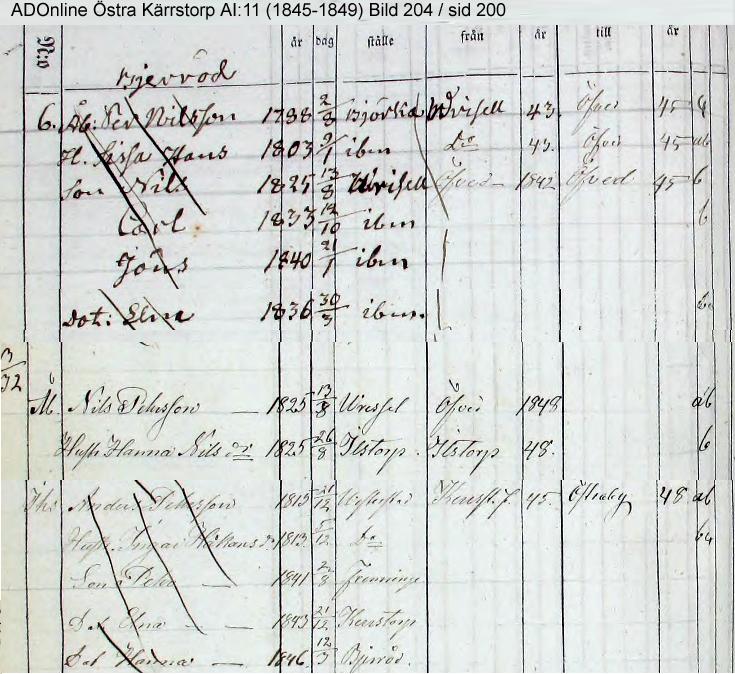 ADOnline Östra Kärrstorp AI:11 (1845-1849) Bild 204 / sid 200
år dag ställe från år till år
Bjerröd
6. Åb: Per Nilsson 1788 2/8 Björka Wrisell 43. Öfved 45
H. Sissa Hans 1803 ibm Do 43. Öfved 45 ab
Son Nils 1825 13/8 Wrisell Öfved 1842 Öfved 45 b
Carl 1833 12/10 ibm b
Jöns 1840 21/1 ibm
Dot: Elna 1836 30/3 ibm.
Åb. Nils Pehrsson 1825 13/8 Wressel Öfved 1848 ab
Hust Hanna Nils dr 1825 26/8 Ilstorp. Ilstorp 48. b
Anders Pehrsson 1815 21/12 45. Östraby 48 ab
Hust Ingar Håkans dr 1813 Do
Son Pehr 1841 Frenninge
Dot Elna 1843 21/12 Kerrstorp
Dot Hanna 1846 12/3 Bjerröd.